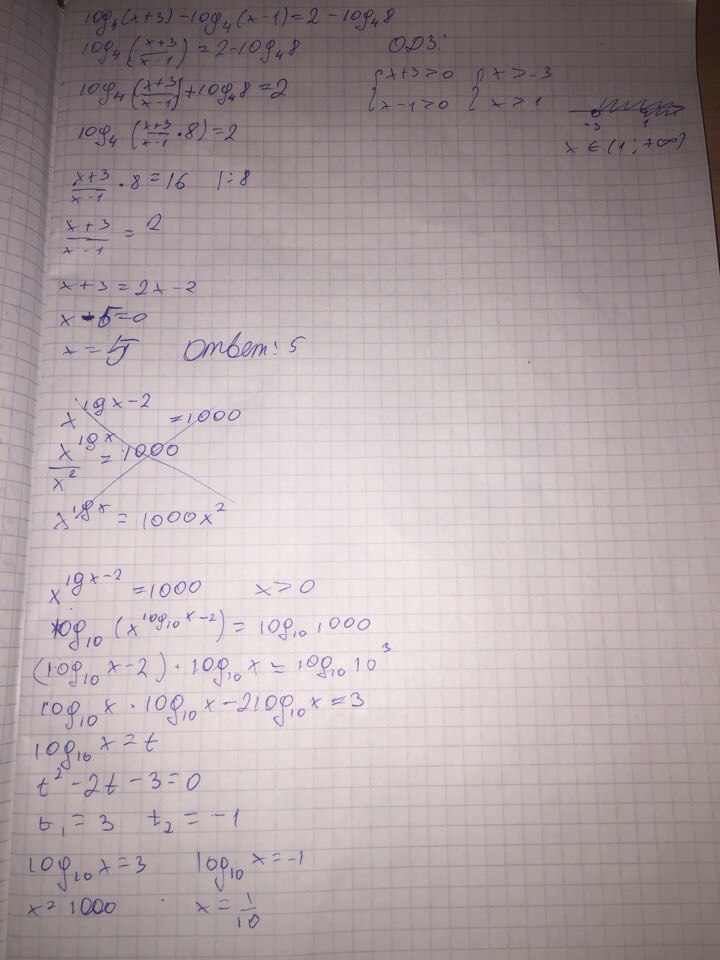 log₄(x+3) - log₄(x-1) = 2 - log₄8
log₄((x+3)/(x-1)) = 2 - log₄8
ОДЗ:
{x+3>0 {x>-3
{x-1>0 {x>1
-3 1
x ∈ (1; +∞)
log₄((x+3)/(x-1)) + log₄8 = 2
log₄((x+3)/(x-1) · 8) = 2
(x+3)/(x-1) · 8 = 16 |:8
(x+3)/(x-1) = 2
x+3 = 2x-2
x-5=0
x = 5 Ответ: 5
x^(lgx-2) = 1000
x^(lgx)/x² = 1000
x^(lgx) = 1000x²
x^(lgx-2) = 1000 x>0
log₁₀(x^(log₁₀x-2)) = log₁₀1000
(log₁₀x-2) · log₁₀x = log₁₀10³
log₁₀x · log₁₀x - 2log₁₀x = 3
log₁₀x = t
t² - 2t - 3 = 0
t₁ = 3 t₂ = -1
log₁₀x = 3 log₁₀x = -1
x = 1000 x = 1/10